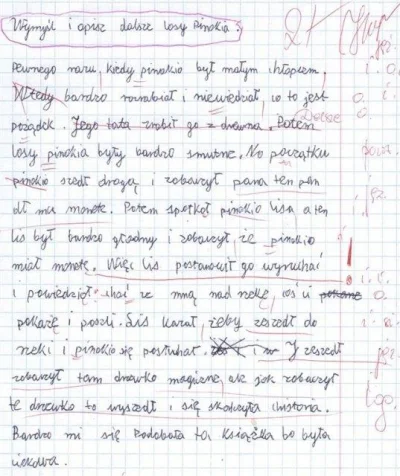 Wymyśl i opisz dalsze losy pinokia?
2+
Pewnego razu, kiedy pinokio był małym chłopcem,
Wtedy bardzo rozrabiał i niewiedział, co to jest
porządek. Jego tata zrobił go z drewna. Potem
losy pinokia były bardzo smutne. Na początku
pinokio szedł drogą i zobaczył pana ten pan
dł mu monetę. Potem spotkoł pinokio lisa a ten
lis był bardzo głodny i zobaczył, że pinokio
miał monetę. Więc lis postanowił go wyruchać
i powiedział: chać ze mną nad rzekę, coś ci
pokażę i poszli. Lis kazał, żeby zeszedł do
rzeki i pinokio się posłuchał. I zeszedł
zobaczył tam drzewko magiczne, ale jak zobaczył
te drzewko to wyszedł i się skończyła historia.
Bardzo mi się Podobała ta, książka bo była
ciekawa.